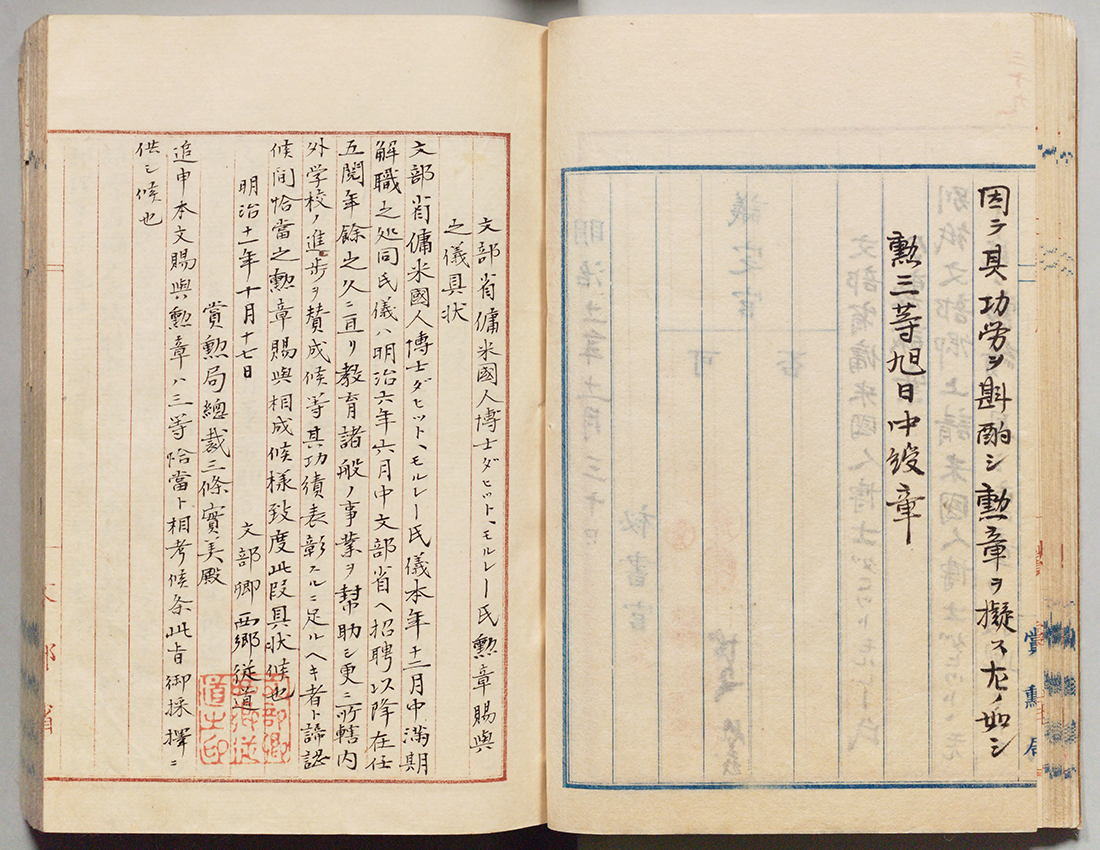 因テ其功労ヲ斟酌シ勲章ヲ擬スル左ノ如シ
勲三等旭日中綬章
賞勲局
文部省傭米國人博士ダビット、モルレー氏勲章賜與
之儀具状
文部省傭米國人博士ダビット、モルレー氏儀本年十二月中満期
解職之処同氏儀ハ明治六年六月中文部省ヘ招聘以降在任
五閲年餘之久ニ亘リ教育諸般ノ事業ヲ幇助シ更ニ所轄内
外学校ノ進歩ヲ賛成候等其功績表彰スルニ足ルヘキ者ト諦認
候間恰當之勲章賜與相成候様致度此段具状候也
明治十一年十月十七日
文部卿西郷従道
文部卿西郷従道之印
賞勲局總裁三條實美殿
追申本文賜與勲章ハ三等恰當ト相考候条此旨御採擇ニ
供シ候也